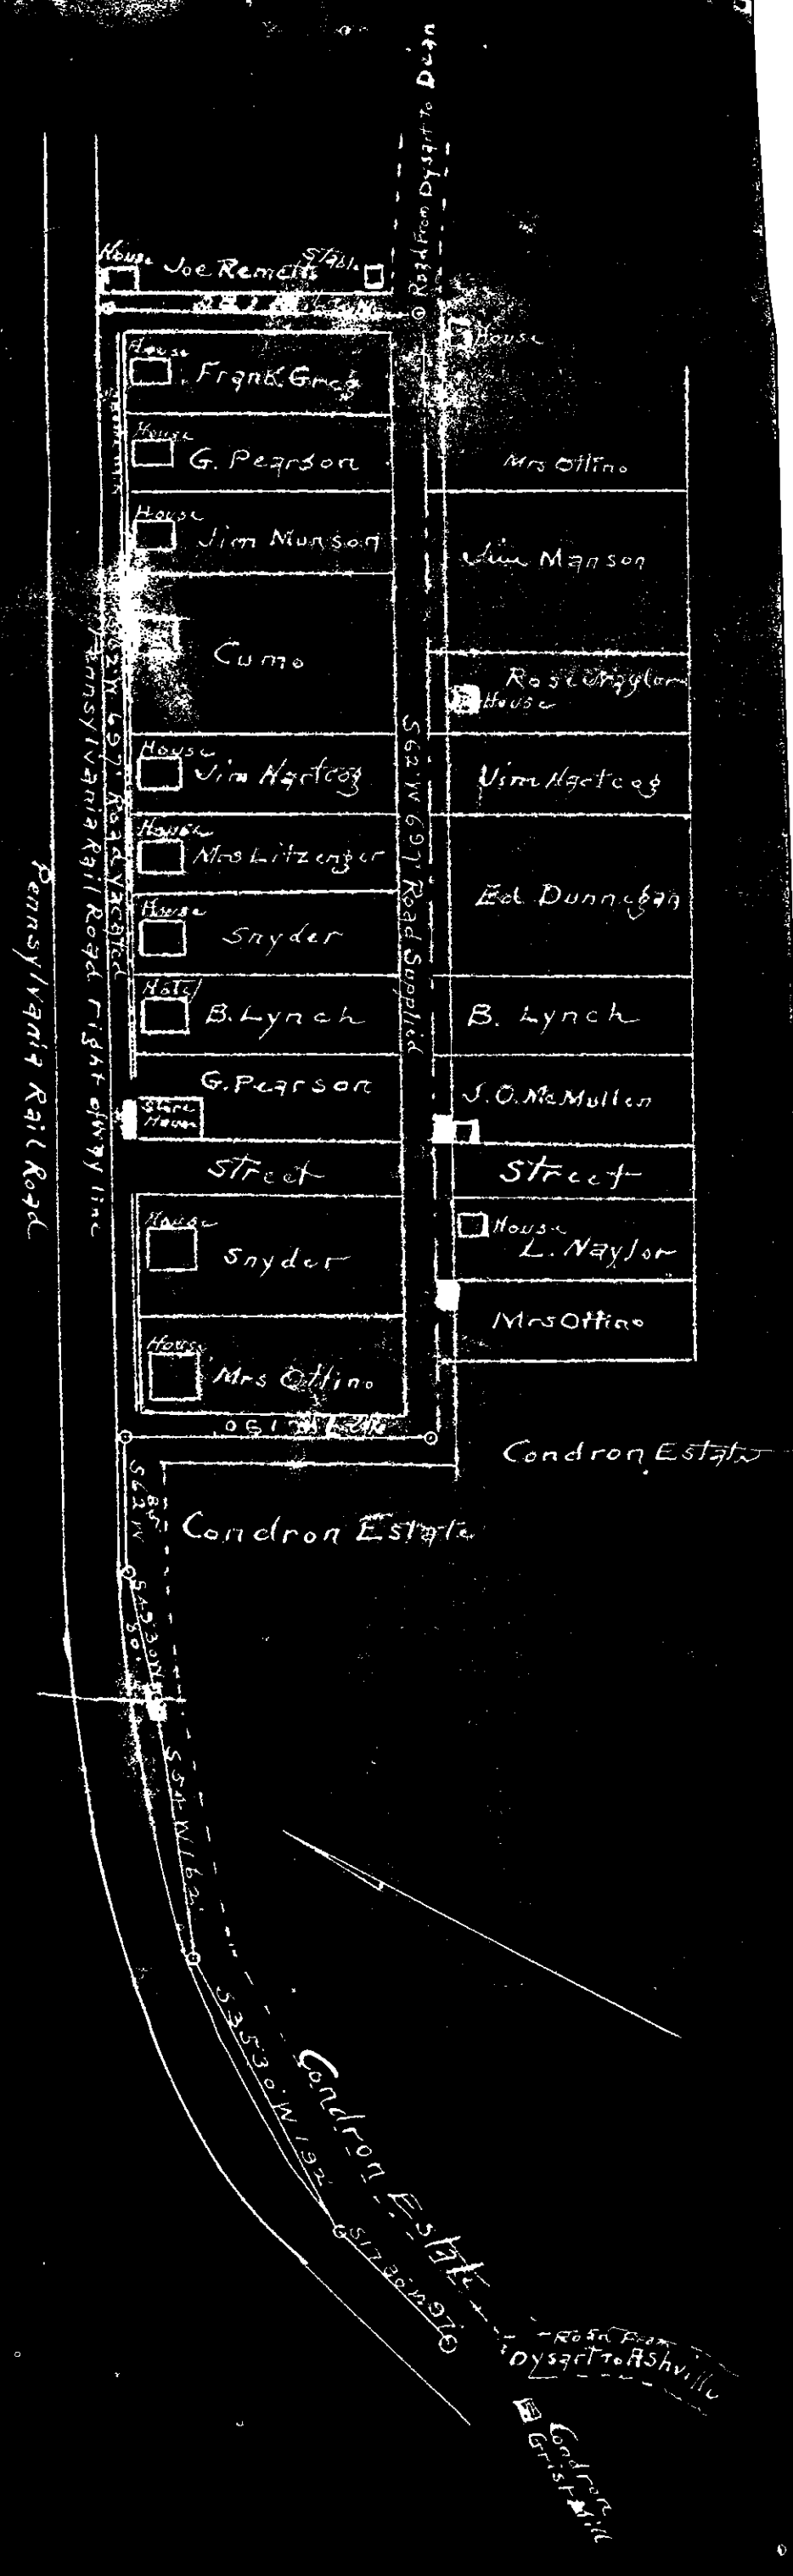 Road From Dysart To Dean
House
Joe Remetts
Stable
House
House
Frank Greg
House
G. Pearson
Mrs Ottino
House
Jim Munson
Jim Manson
Cumo
Rose Naylor
House
House
Jim Hartcog
Jim Hartcog
House
Mrs Litzenger
Ed Dunnegan
House
Snyder
Hotel
B. Lynch
B. Lynch
G. Pearson
J. O. McMullen
Store
House
Street
Street
House
Snyder
House
L. Naylor
Mrs Ottino
House
Mrs Ottino
S 62 W 697' Road Supplied
S 62 W 697' Road Vacated
Pennsylvania Rail Road right of way line
Pennsylvania Rail Road
150'
Condron Estate
Condron Estate
S 62 W
85'
80'
S 54 W 162'
S 35 30' W 192'
Condron Estate
S 17 30' W 97'
Road From
Dysart To Ashville
Condron
Grist Mill